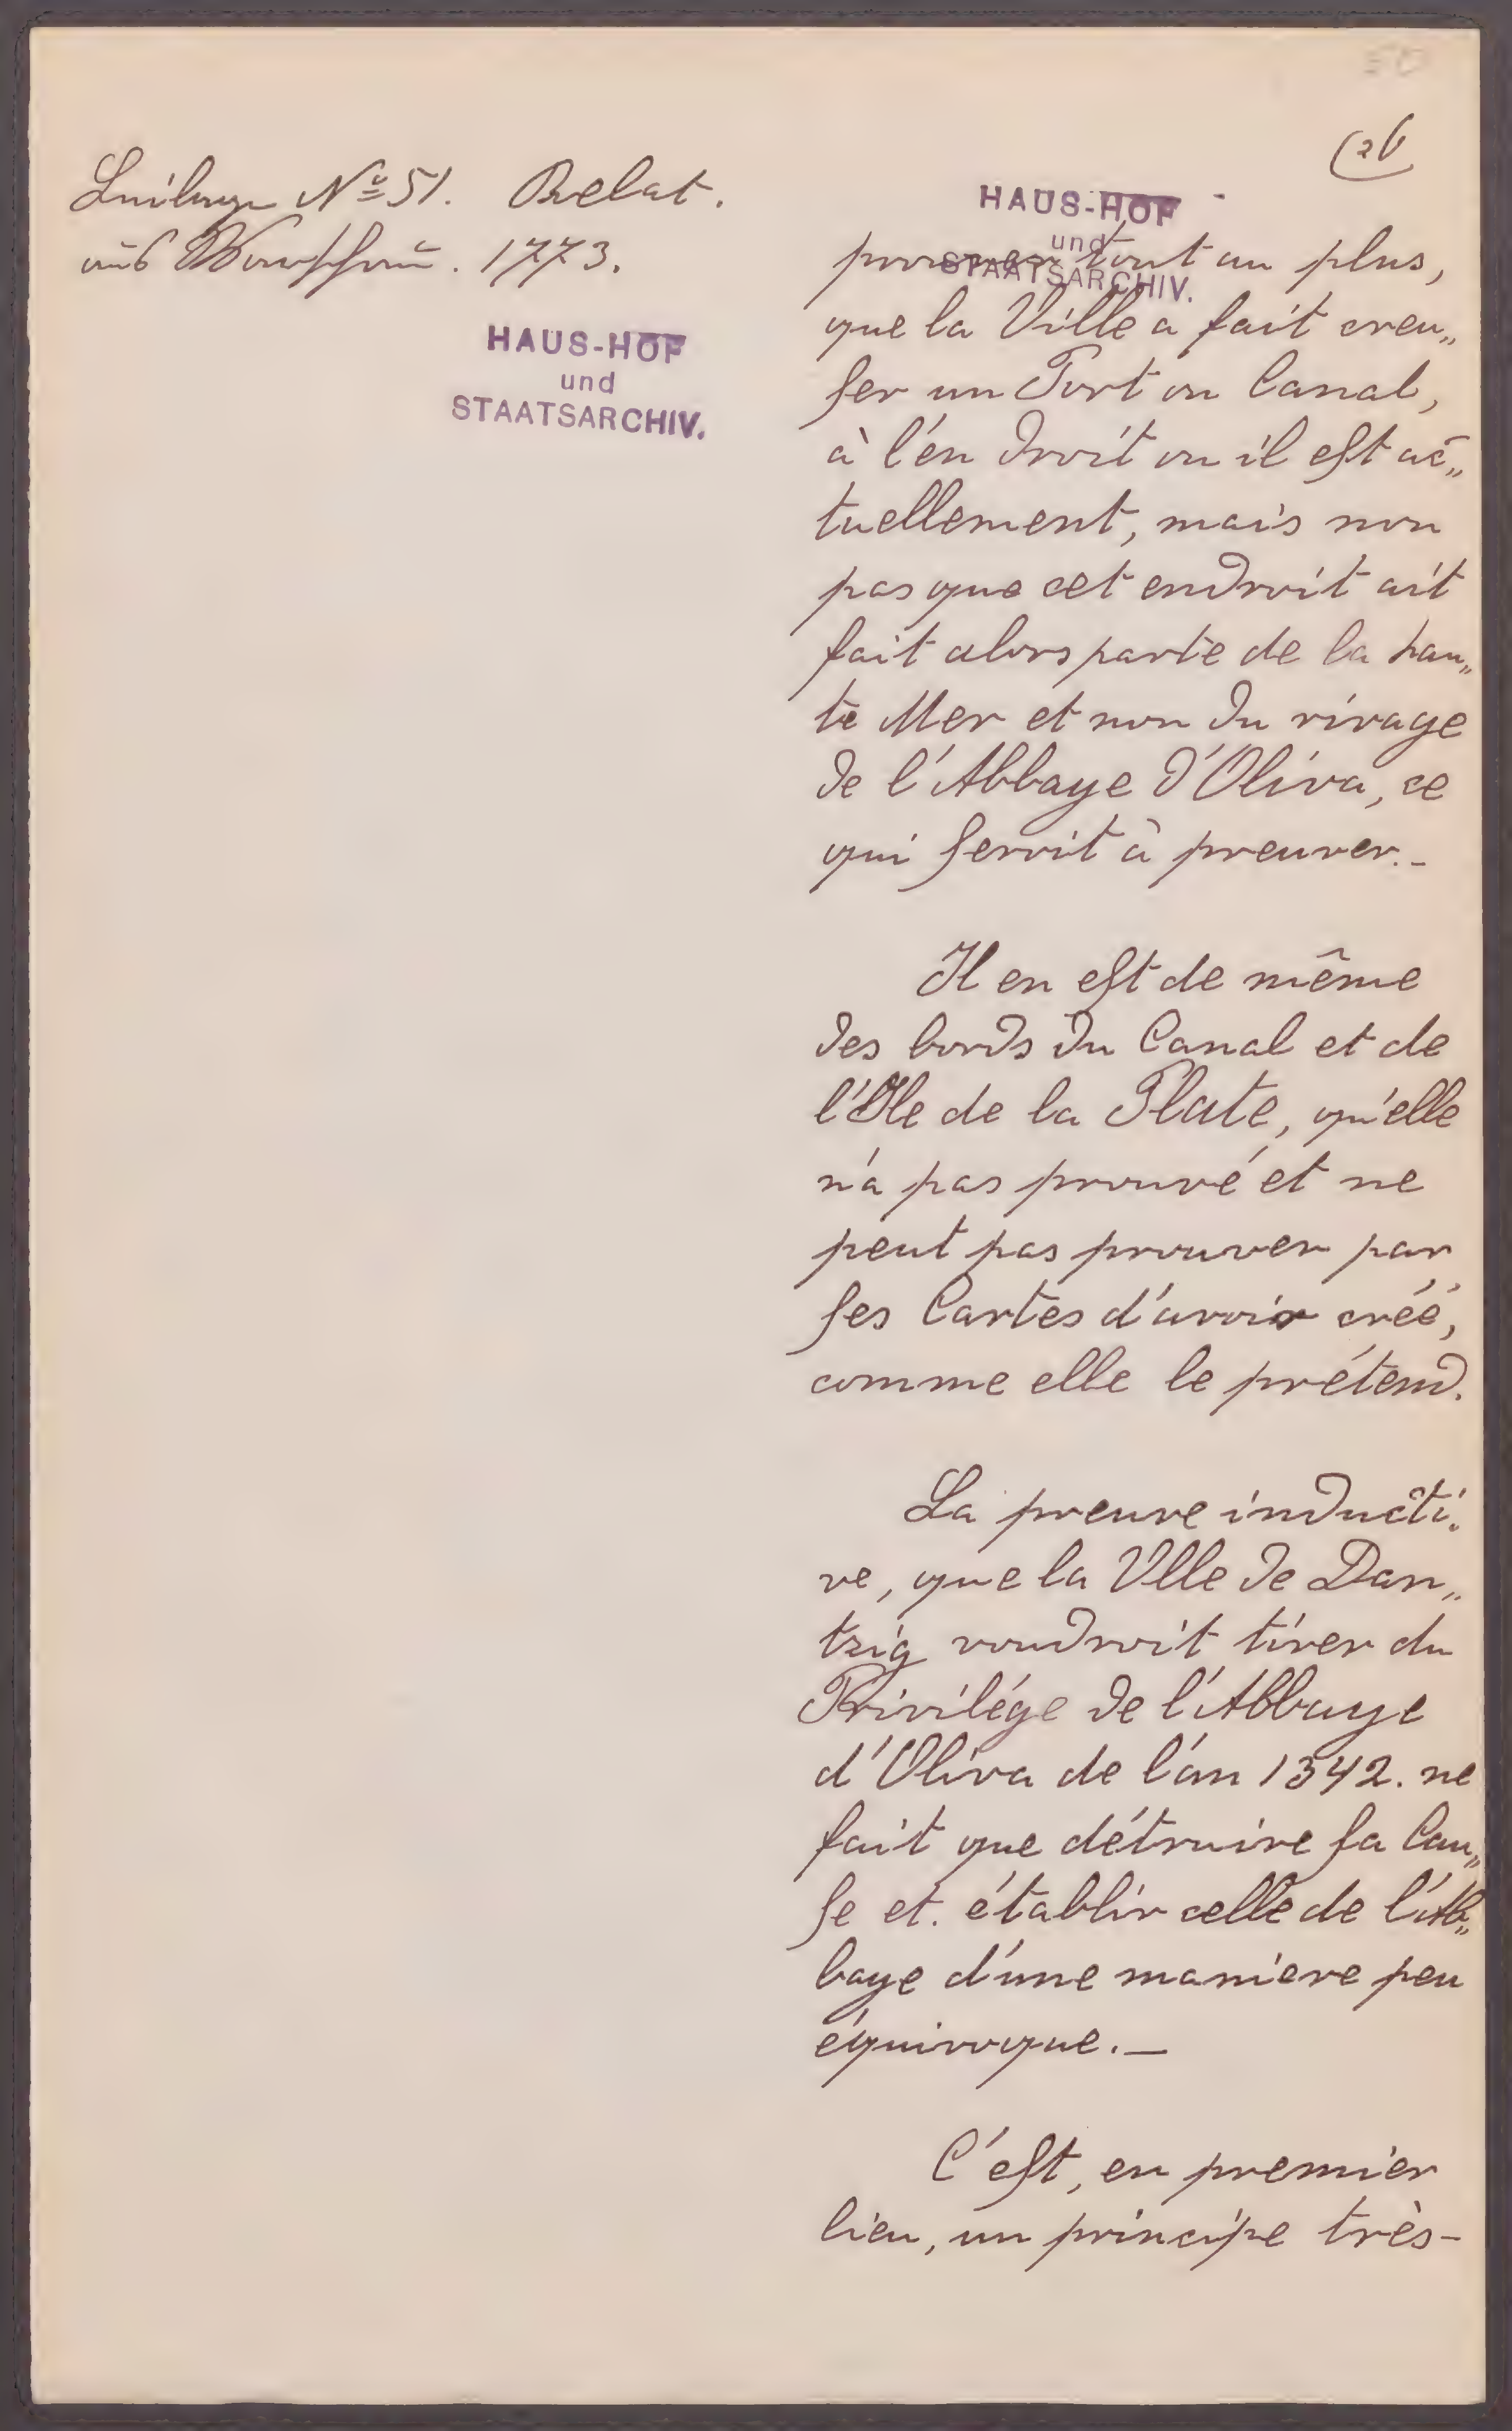 50
26
Beilage Nº 51. Relat.
aus Warschau. 1773.
HAUS-HOF
und
STAATSARCHIV.
HAUS-HOF
und
STAATSARCHIV.
prouver tout au plus,
que la Ville a fait creu„
ser un Port ou Canal,
à l'én droit ou il est ac„
tuellement, mais non
pas que cet endroit ait
fait alors partie de la hau„
te Mer et non du rivage
de l'Abbaye d'Oliva, ce
qui seroit à preuver.-
Il en est de même
des bords du Canal et de
l'Ile de la Plate, qu'elle
n'a pas prouvé et ne
peut pas prouver par
ses Cartes d'avoir créé,
comme elle le prétend.
La preuve inducti„
ve, que la Vlle de Dan„
tzig voudroit tirer du
Privilége de l'Abbaye
d'Oliva de l'an 1342. ne
fait que détruire sa Cau„
se et. établir celle de l'Ab„
baye d'une maniere peu
équivoque.—
C'est, en premier
lieu, un principe très-